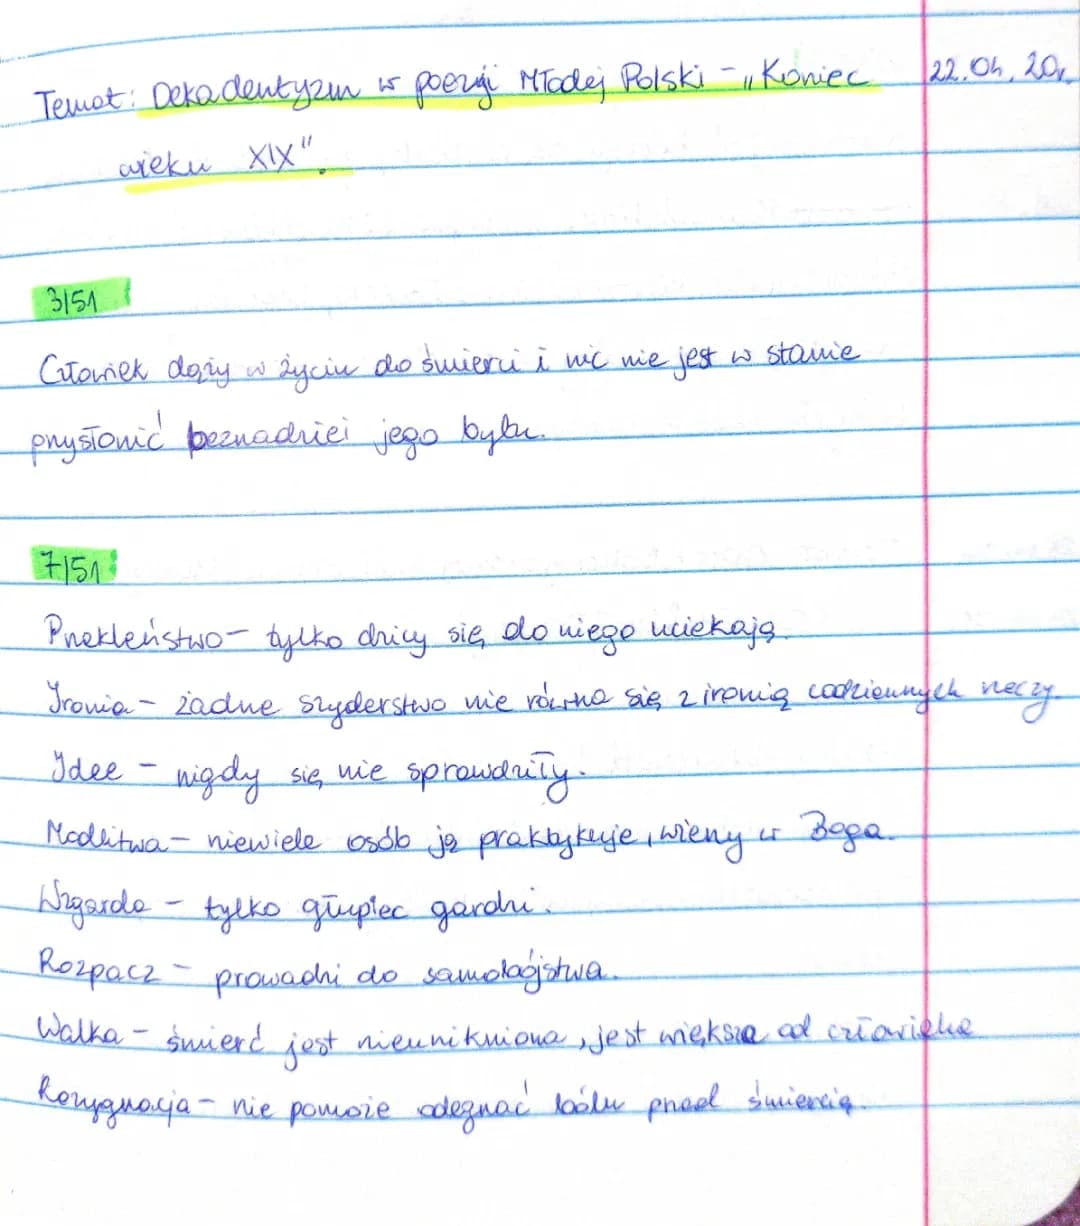 Temat: Dekadentyzm w poezji Młodej Polski - „Koniec 22.04.20
wieku XIX".
3/51
Człowiek dąży w życiu do śmierci i nic nie jest w stanie
przysłonić beznadziei jego bytu.
7/51
Przekleństwo - tylko dzicy się do niego uciekają.
Ironia - żadne szyderstwo nie równa się z ironią codziennych rzeczy.
Idee - nigdy się nie sprawdziły.
Modlitwa - niewiele osób ją praktykuje, wierzy w Boga.
Wzgarda - tylko głupiec gardzi.
Rozpacz - prowadzi do samobójstwa.
Walka - śmierć jest nieunikniona, jest większa od człowieka
Rezygnacja - nie pomoże odegnać bólu przed śmiercią.